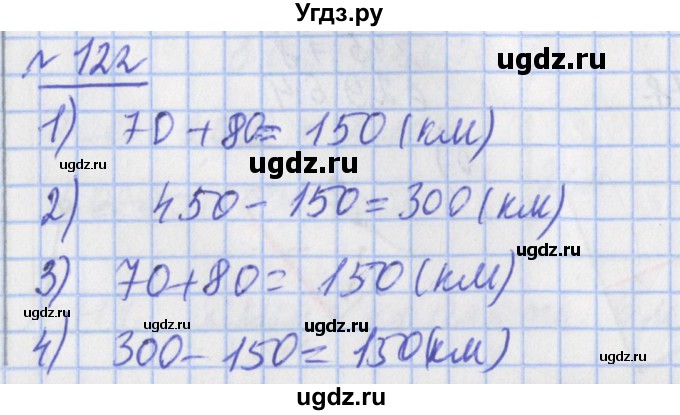 Угдз.ру
№ 122
ugdz.ru
1) 70 + 80 = 150 (км)
ugdz.ru ugdz.ru ugdz.ru
2) 450 - 150 = 300 (км)
ugdz.ru
3) 70 + 80 = 150 (км)
ugdz.ru ugdz.ru ugdz.ru ugdz.ru
4) 300 - 150 = 150 (км)
ugdz.ru